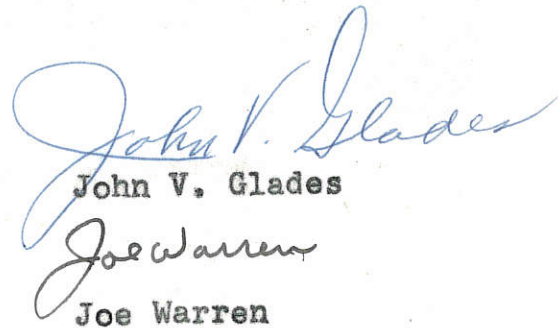 John V. Glades
John V. Glades
Joe Warren
Joe Warren